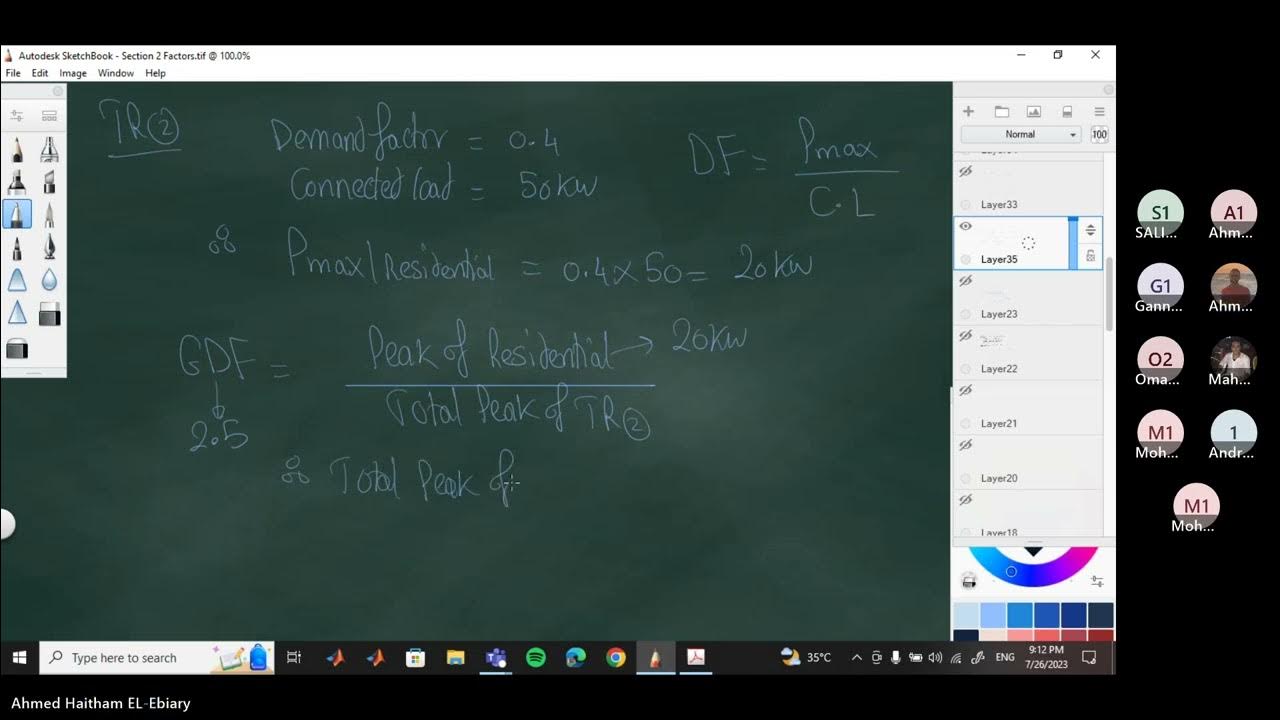 Autodesk SketchBook - Section 2 Factors.tif @ 100.0%
File Edit Image Window Help
TR②
Demand factor = 0.4
Connected load = 50kw
DF = Pmax
C.L
Pmax|Residential = 0.4 × 50 = 20kw
GDF = Peak of Residential → 20kw
Total Peak of TR②
2.5
Total Peak of
Normal
100
Layer33
Layer35
Layer23
Layer22
Layer21
Layer20
Layer18
S1
SALI...
A1
Ahm...
G1
Gann...
Ahm...
O2
Oma...
Mah...
M1
Moh...
1
Andr...
M1
Moh...
Type here to search
35°C
ENG
9:12 PM
7/26/2023
Ahmed Haitham EL-Ebiary